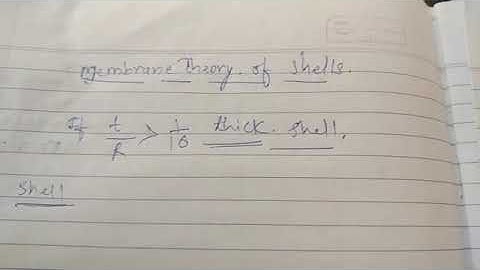 Membrane Theory of Shells.
If t/R > 1/10 thick shell.
Shell